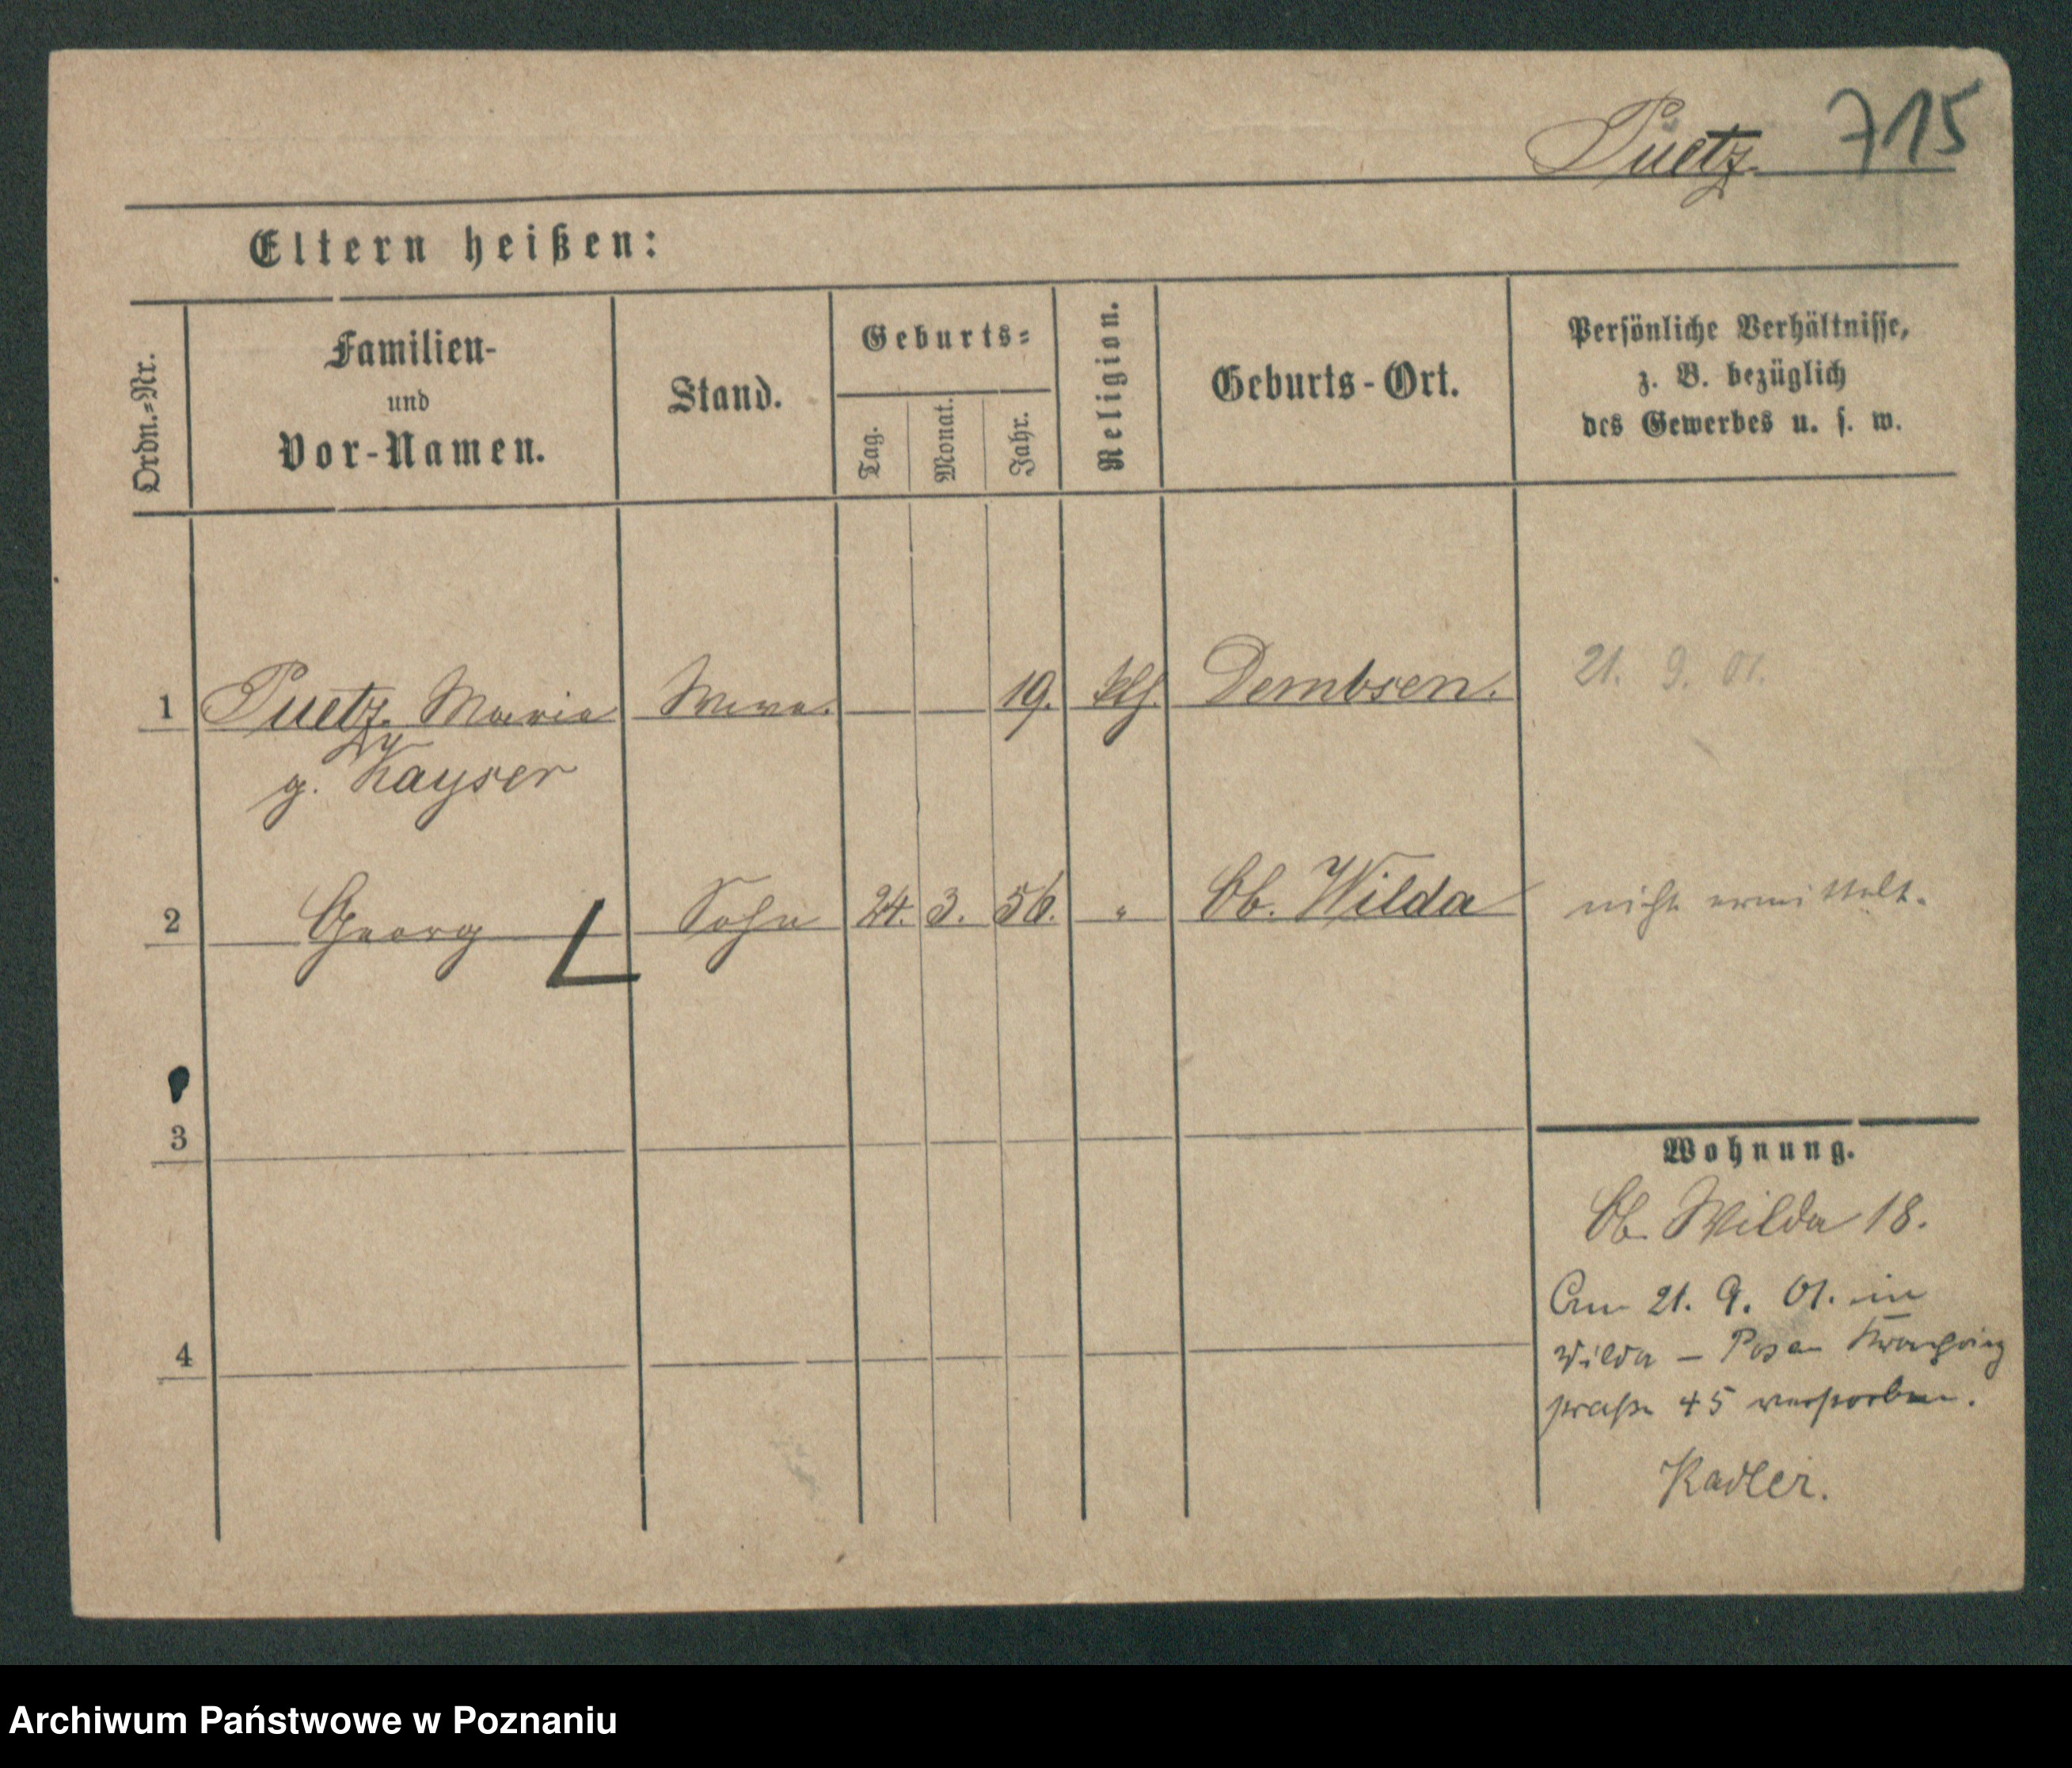 Puetz. 715
Eltern heißen:
Ordn.-Nr.
Familien-
und
Vor-Namen.
Stand.
Geburts-
Tag.
Monat.
Jahr.
Religion.
Geburts-Ort.
Persönliche Verhältnisse,
z. B. bezüglich
des Gewerbes u. s. w.
1 Puetz. Maria 19. Dembsen. 21. 9. 01.
g. Kayser
2 Georg Sohn 24. 3. 56. " Ob. Wilda nicht ermittelt.
3
Wohnung.
Ob. Wilda 18.
Am 21. 9. 01. in
4
Wilda – Posen
straße 45 verstorben.
Kadler.
Archiwum Państwowe w Poznaniu